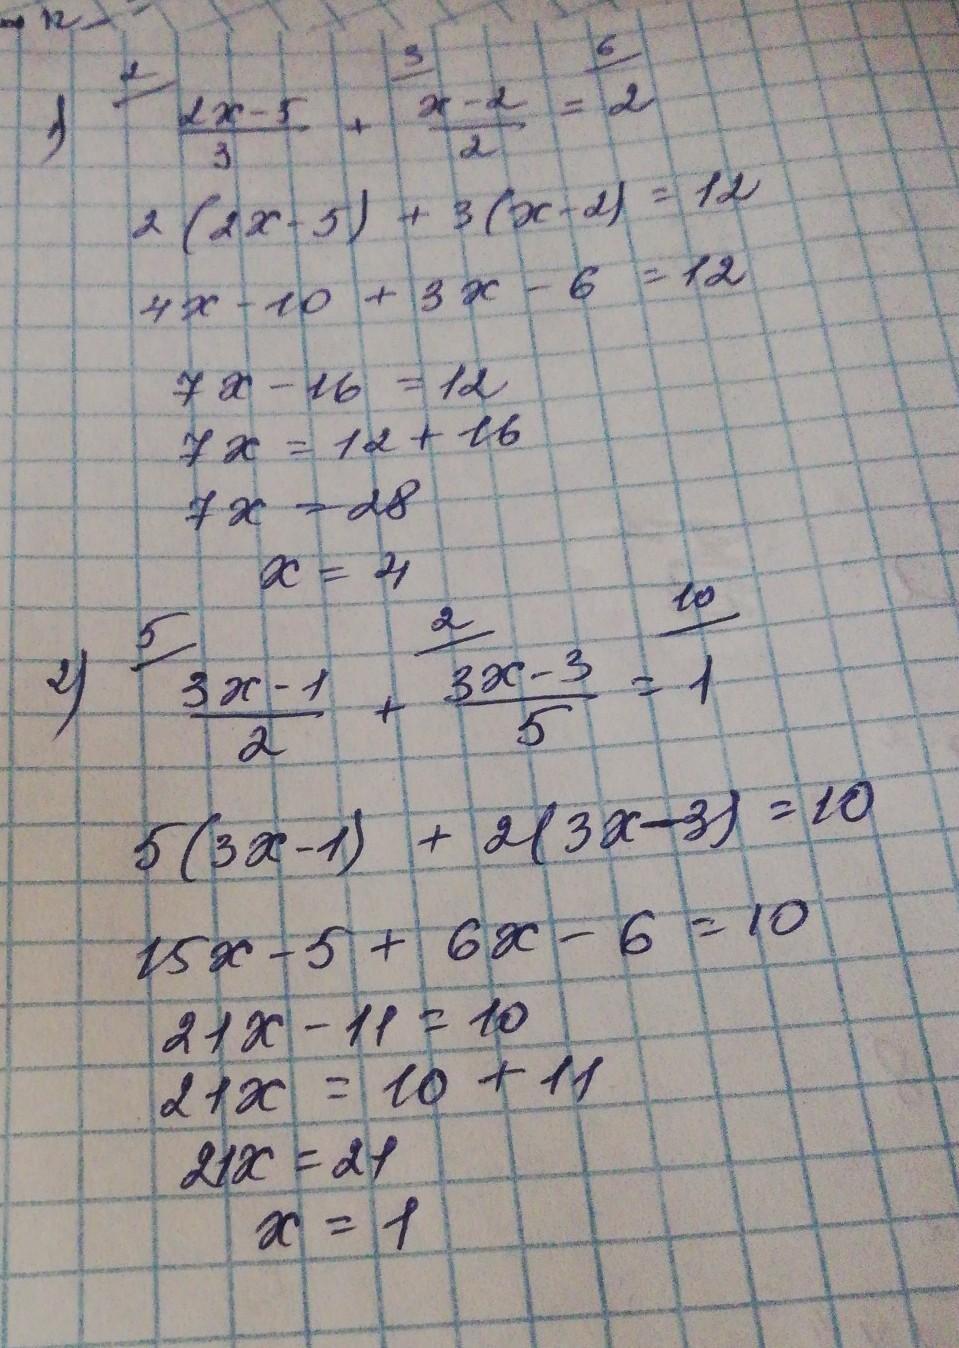 12
2 3 6
1) (2x-5)/3 + (x-2)/2 = 2
2(2x-5) + 3(x-2) = 12
4x-10 + 3x-6 = 12
7x-16 = 12
7x = 12+16
7x = 28
x = 4
5 2 10
2) (3x-1)/2 + (3x-3)/5 = 1
5(3x-1) + 2(3x-3) = 10
15x-5 + 6x-6 = 10
21x-11 = 10
21x = 10+11
21x = 21
x = 1